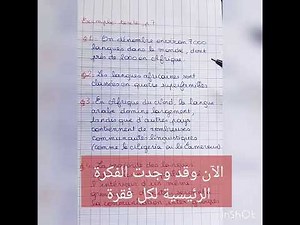 Exemple texte p 1
§1. On dénombre environ 7000
langues dans le monde, dont
près de 2000 en Afrique
§2. Les langues africaines sont
classées en quatre superfamilles
§3. En Afrique du Nord, la langue
arabe domine largement,
tandis que d'autres pays
contiennent de nombreuses
communautés linguistiques
(comme le Nigeria ou le Cameroun)
الآن وقد وجدت الفكرة
الرئيسية لكل فقرة